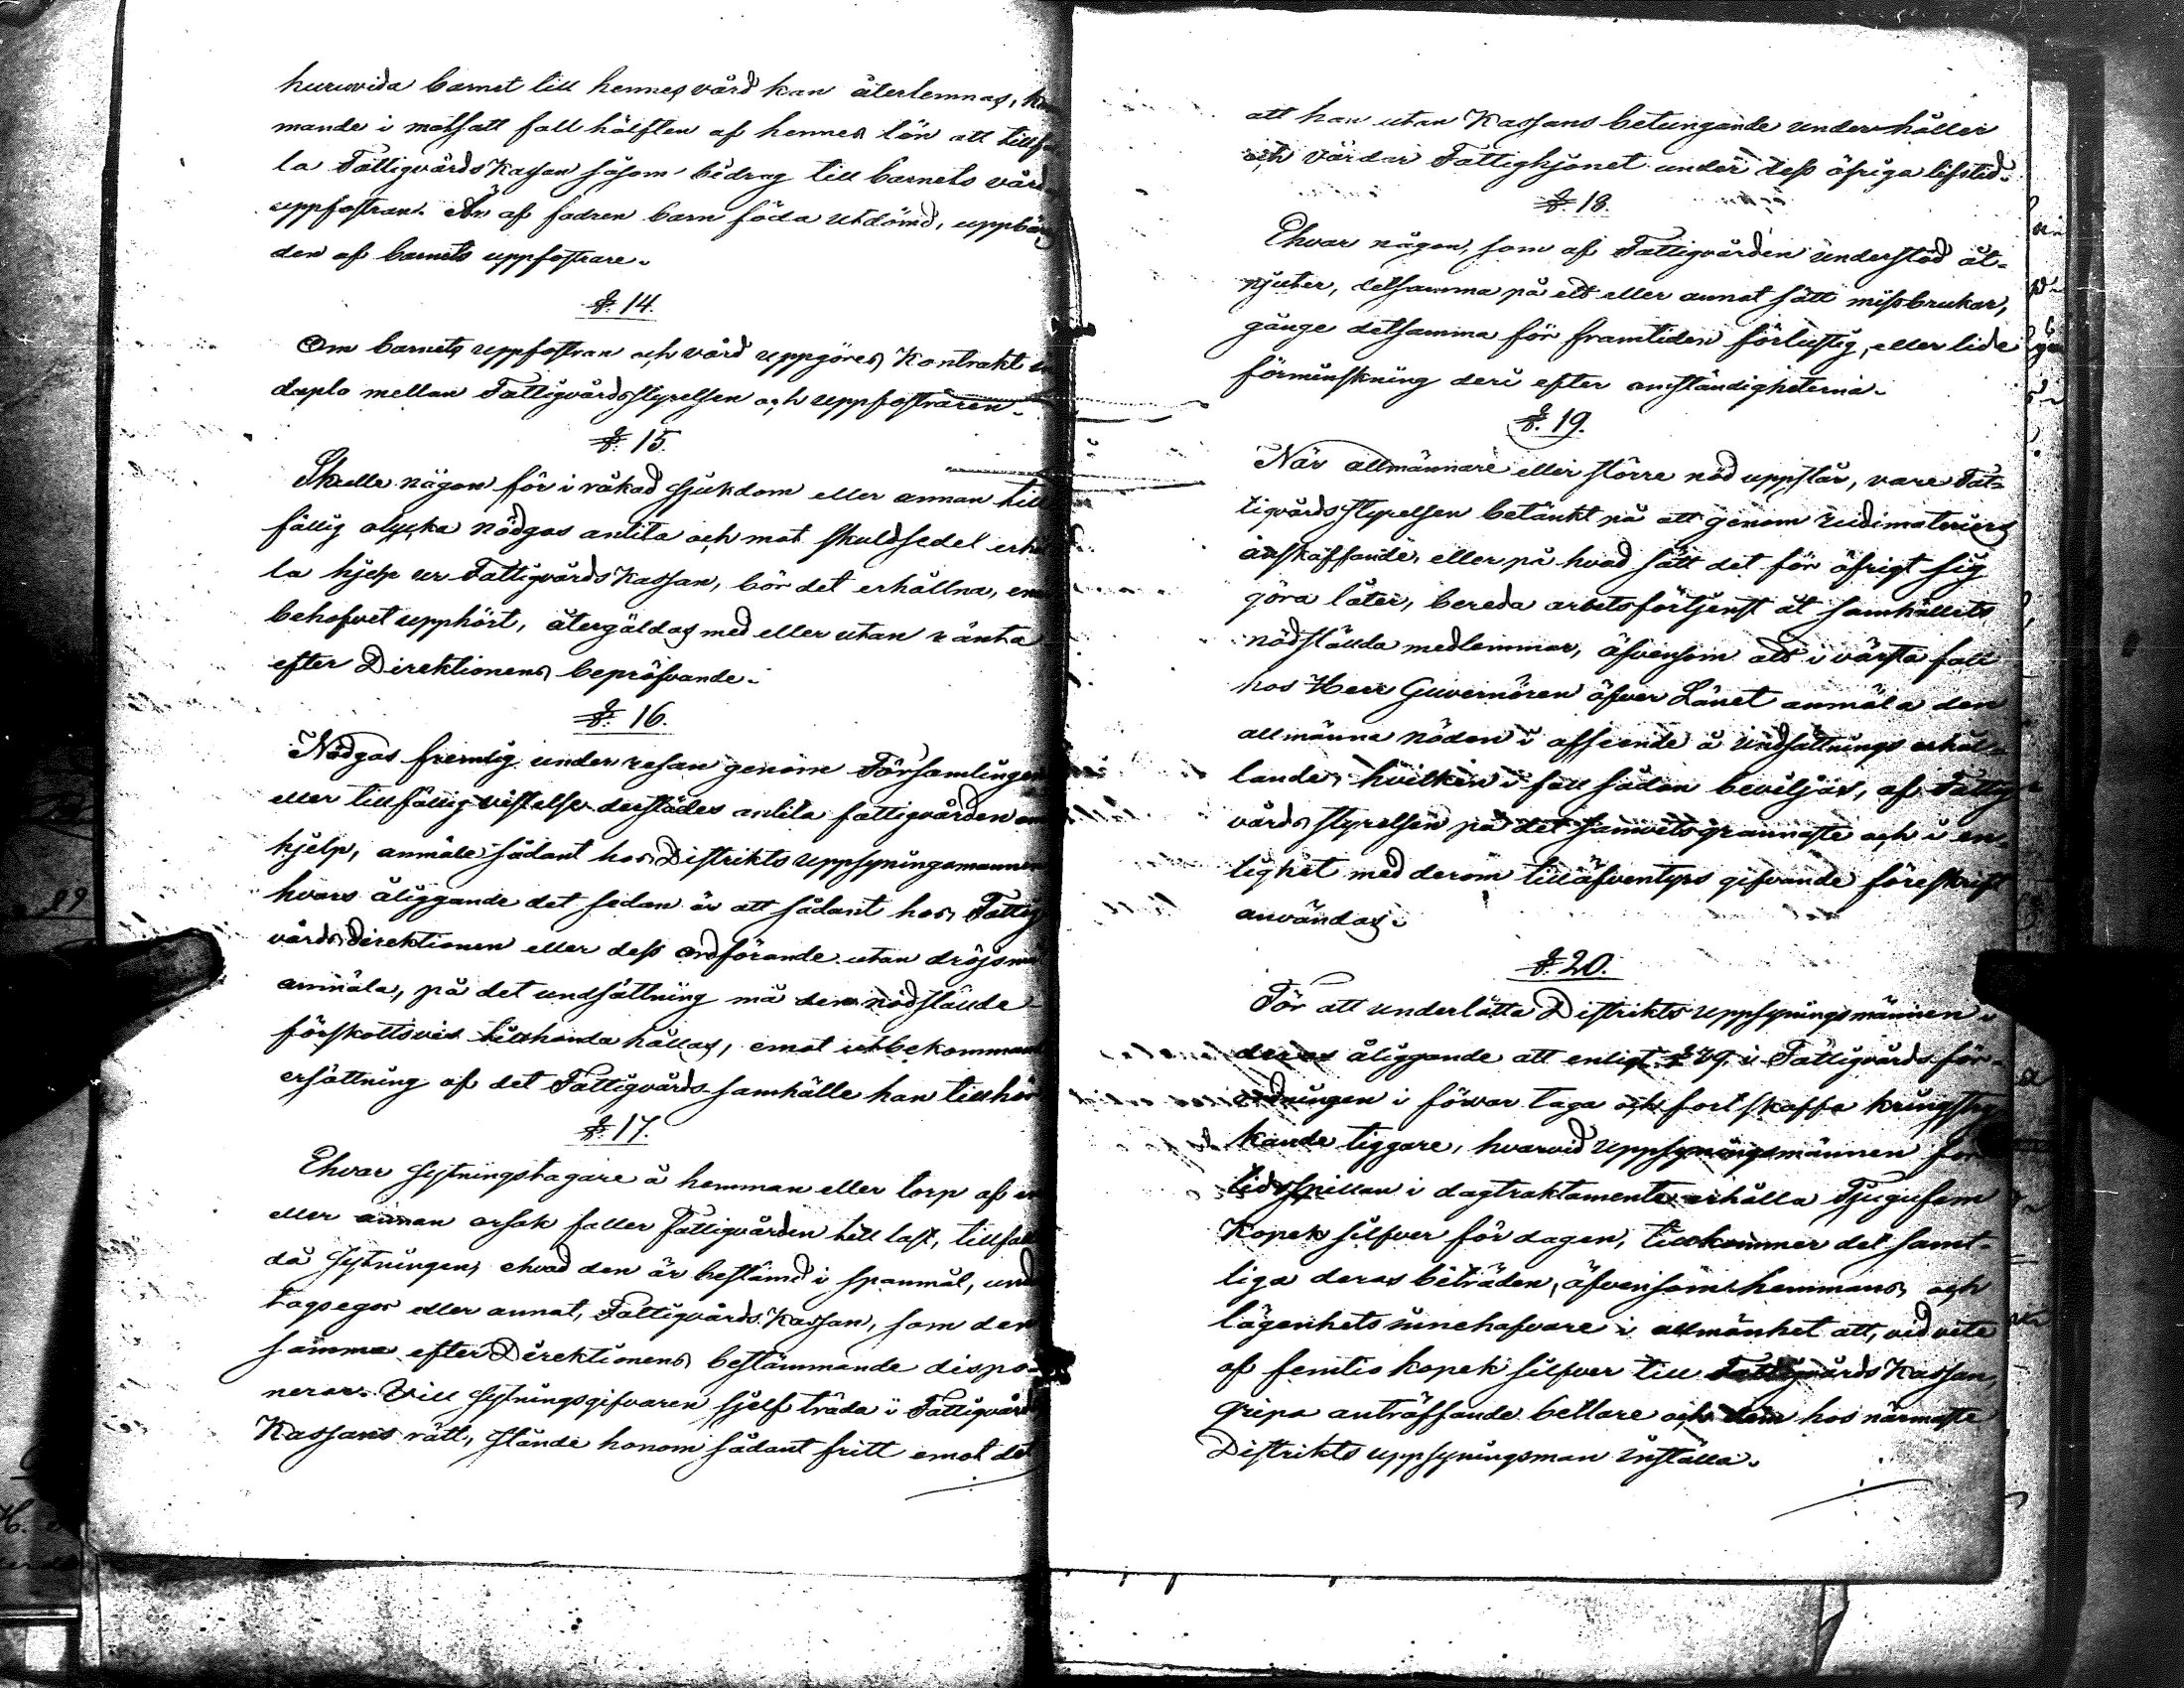 huruvida barnet till hennes vård kan återlemnas, kom
mande i motsatt fall hälften af hennes lön att tillfal
la Fattigvårds Kassan såsom bidrag till barnets vård
uppfostran. Är af fadren barn föda utdömd, uppbäres
den af barnets uppfostrare.
§. 14.
Om barnets uppfostran och vård uppgöres Kontrakt in
duplo mellan Fattigvårdsstyrelsen och uppfostraren.
§. 15.
Skulle någon för i råkad sjukdom eller annan till
fällig olycka nödgas anlita och mot skuldsedel erhål
la hjelp ur Fattigvårds Kassan, bör det erhållna, em
behofvet upphört, återgäldas med eller utan ränta
efter Direktionens bepröfvande.
§. 16.
Nödgas fremling under resan genom Församlingen
eller tillfällig vistelse derstädes anlita fattigvården om
hjelp, anmäle sådant hos Distrikts uppsyningsmannen
hvars åliggande det sedan är att sådant hos Fattig
vårds Direktionen eller dess ordförande utan dröjsmål
anmäla, på det undsättning må den nödstälde
förskottsvis tillhanda hållas, emot utbekommande
ersättning af det Fattigvårds samhälle han tillhör
§. 17.
Ehvar sytningstagare å hemman eller torp af en
eller annan orsak faller Fattigvården till last, tillfaller
då sytningen, ehvad den är bestämd i spanmål, und
tagsegor eller annat, Fattigvårds Kassan, som den
samma efter Direktionens bestämmande dispo-
nerar. Vill sytningsgifvaren sjelf träda i Fattigvårds
Kassans rätt, stånde honom sådant fritt emot det
att han utan Kassans betungande underhåller
och vårdar Fattighjonet under dess öfriga lifstid.
§. 18.
Ehvar någon, som af Fattigvården understöd åt-
njuter, detsamma på ett eller annat sätt missbrukar,
gånge detsamma för framtiden förlustig, eller lide
förminskning deri efter omständigheterna.
§. 19.
När allmännare eller större nöd uppstår, vare Fat-
tigvårds styrelsen betänkt på att genom rudimateriers
anskaffande, eller på hvad sätt det för öfrigt sig
göra låter, bereda arbetsförtjenst åt samhällets
nödstälda medlemmar, äfvensom att i värsta fall
hos Herr Guvernören öfver Länet anmäla den
allmänna nöden i afseende å undsättnings erhål-
lande, hvilken i fall sådan beviljas, af Fattig
vårds styrelsen på det samvetsgrannaste och i en-
lighet med derom tilläfventyrs gifvande föreskrift
användas.
§. 20.
För att underlätta Distrikts uppsyningsmännen
deras åliggande att enligt § 39. i Fattigvårds för-
ordningen i förvar taga och fortskaffa kringstry
kande tiggare, hvarvid uppsyningsmännen för
tidsspillan i dagtraktamente erhålla Tjugufem
Kopek silfver för dagen, tillkommer det samt-
liga deras biträden, äfvensom hemmans och
lägenhets innehafvare i allmänhet att, vid vite
af femtio kopek silfver till Fattigvårds Kassan,
gripa anträffande bettlare och dem hos närmaste
Distrikts uppsyningsman inställa.